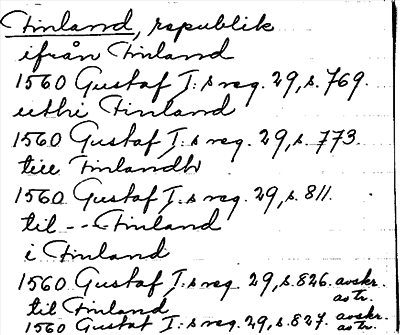 Finland, republik
ifrån Finland
1560 Gustaf I:s reg. 29, s. 769.
uthi Finland
1560 Gustaf I:s reg. 29, s. 773.
till Finlandh
1560 Gustaf I:s reg. 29, s. 811.
til -- Finland
i Finland
1560 Gustaf I:s reg. 29, s. 826. avskr. av tr.
til Finland
1560 Gustaf I:s reg. 29, s. 827. avskr. av tr.